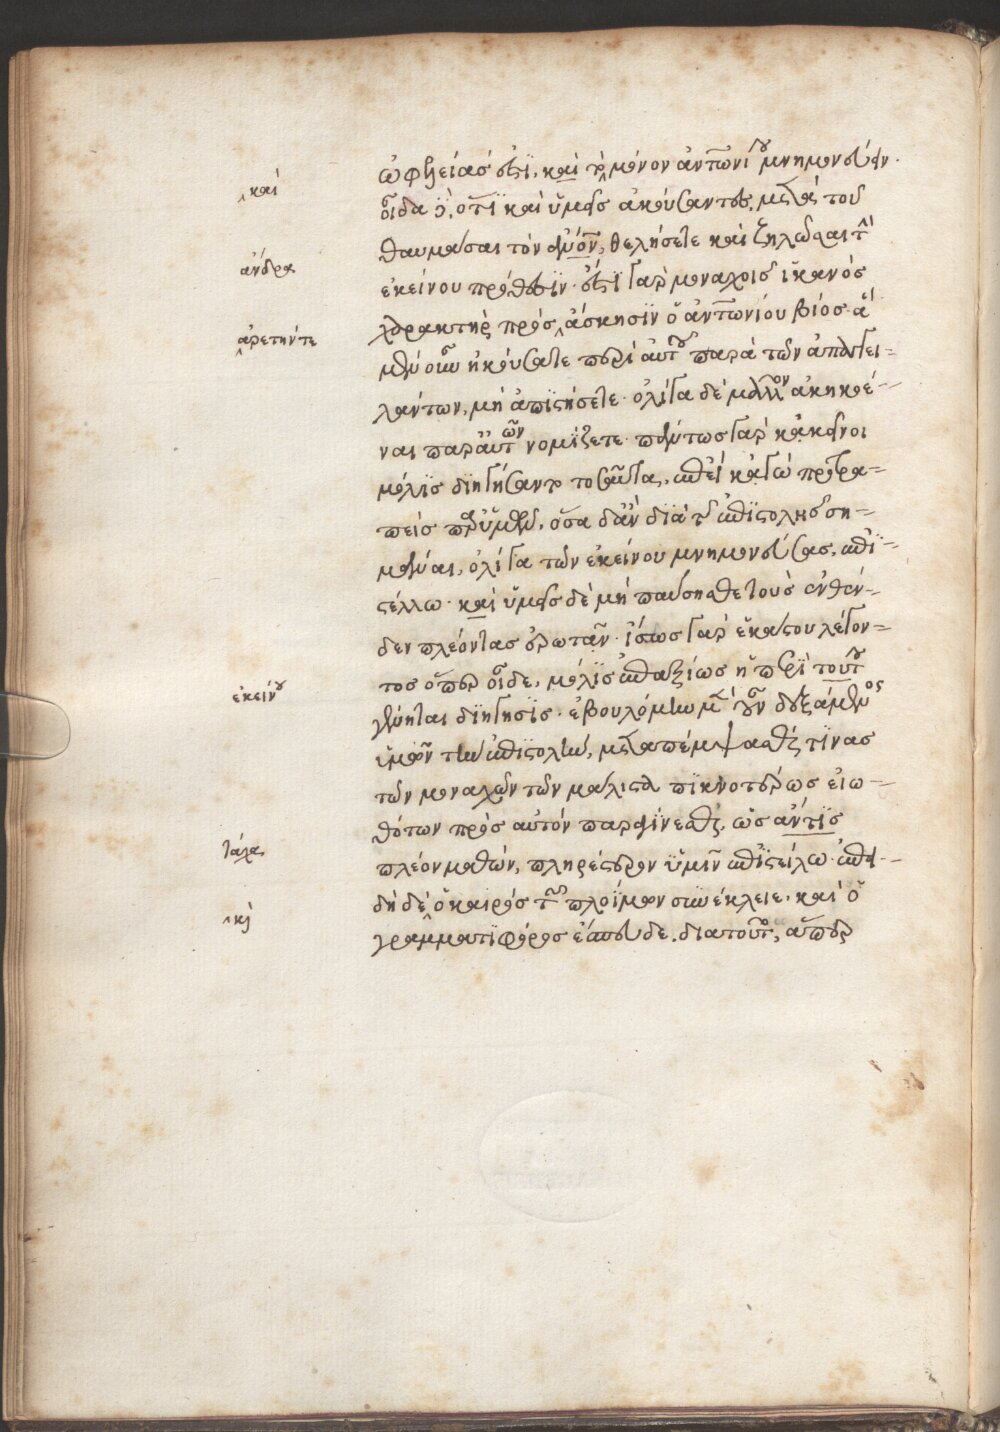 ὠφελείας ἐστὶ, καὶ τὸ μόνον ἀντωνίου μνημονεύειν·
καὶ
οἶδα δὲ, ὅτι καὶ ὑμεῖς ἀκούσαντες, μετὰ τοῦ
θαυμάσαι τὸν, θελήσετε καὶ ζηλῶσαι τὴν
ἄνδρα
ἐκείνου πρόθεσιν· ἔστι γὰρ μοναχοῖς ἱκανὸς
χαρακτὴρ πρὸς ἄσκησιν ὁ ἀντωνίου βίος· ἃ
ἀρετήν τε
μὲν οὖν ἠκούσατε περὶ αὐτοῦ παρὰ τῶν ἀπαγγει-
λάντων, μὴ ἀπιστήσετε· ὀλίγα δὲ μᾶλλον ἀκηκοέ-
ναι παρ' αὐτῶν νομίζετε· πάντως γὰρ κἀκεῖνοι
μόλις διηγήσαντο τοσαῦτα, ἐπεὶ κἀγὼ προτρα-
πεὶς παρ' ὑμῶν, ὅσα δ' ἂν διὰ τῆς ἐπιστολῆς ση-
μάναι, ὀλίγα τῶν ἐκείνου μνημονεύσας, ἐπι-
στέλλω· καὶ ὑμεῖς δὲ μὴ παύσησθε τοὺς ἐνθέν-
δεν πλέοντας ἐρωτᾶν· ἴσως γὰρ ἑκάστου λέγον-
τος ὅπερ οἶδε, μόλις ἐπαξίως ἡ περὶ τούτου
ἐκείνου
γένηται διήγησις· ἐβουλόμην μὲν οὖν δεξάμενος
ὑμῶν τὴν ἐπιστολὴν, μεταπέμψασθαί τινας
τῶν μοναχῶν τῶν μάλιστα πικνοτέρως εἰω-
θότων πρὸς αὐτὸν παραγίνεσθαι, ὡς ἄν τις
τάχα
πλέον μαθὼν, πληρέστερον ὑμῖν ἐπιστείλω· ἐπει-
δὴ δὲ ὁ καιρὸς τῶν πλοΐμων συνέκλειε, καὶ ὁ
καὶ
γραμματιφόρος ἔσπευδε, διὰ τοῦτο, ἅπερ